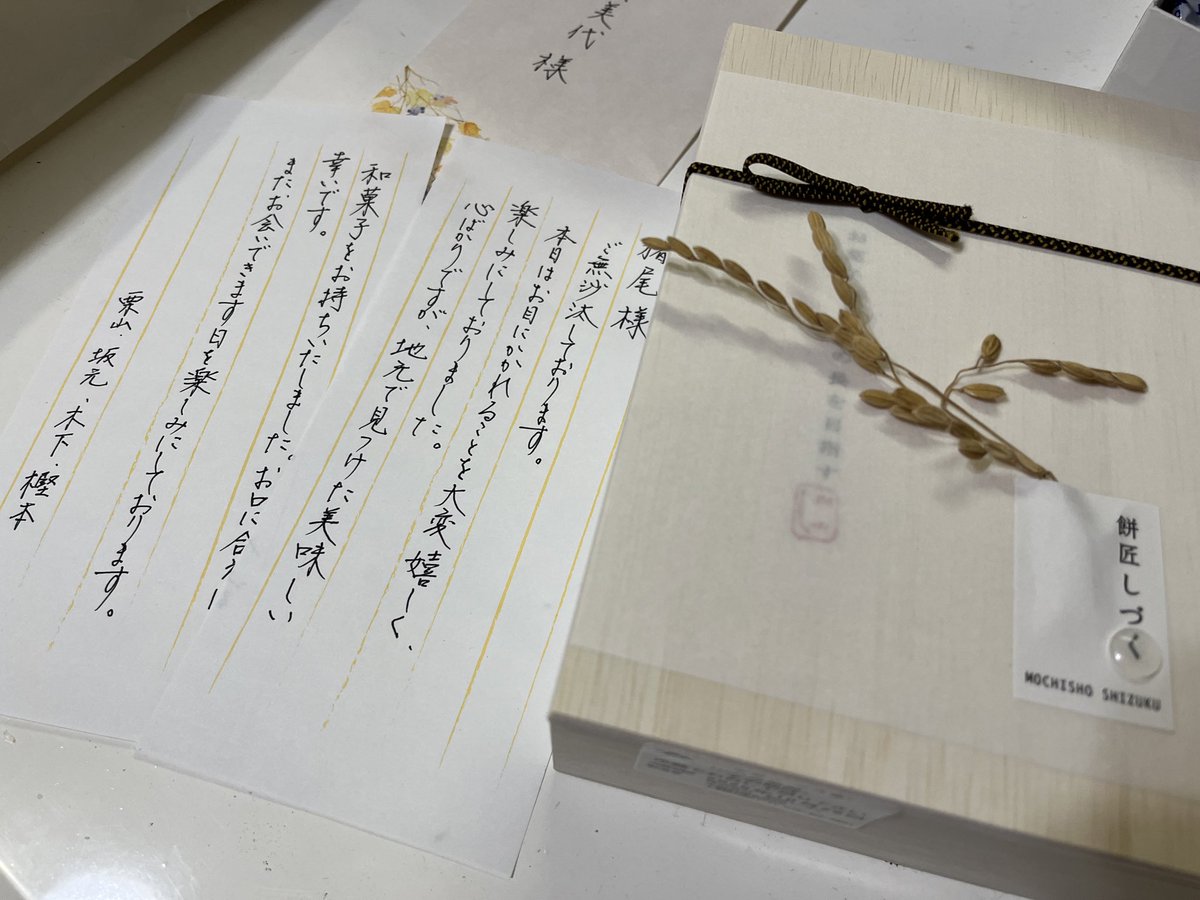 美代様
猪尾様
ご無沙汰しております。
本日はお目にかかれることを大変嬉しく、
楽しみにしておりました。
心ばかりですが、地元で見つけた美味しい
和菓子をお持ちいたしました。お口に合うー
幸いです。
またお会いできます日を楽しみにしております。
栗山・坂元・木下・樫本
を目指す
餅匠しづく
MOCHISHO SHIZUKU